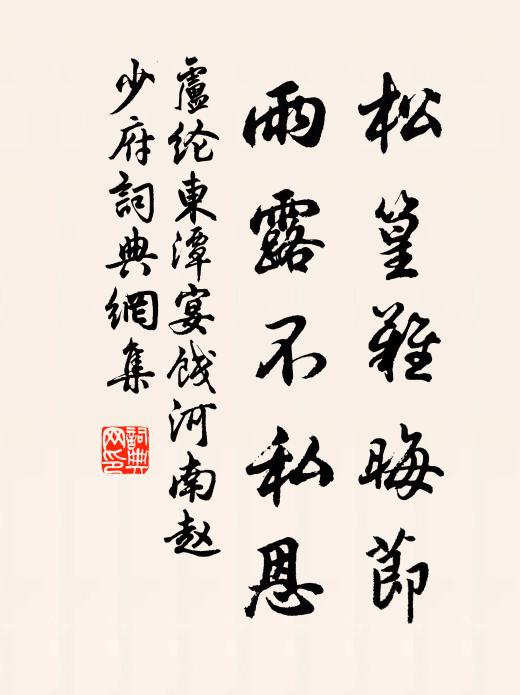 松篁難晦節
雨露不私恩
盧纶東潭宴餞河南赵
少府詞典網集
詞典
网印